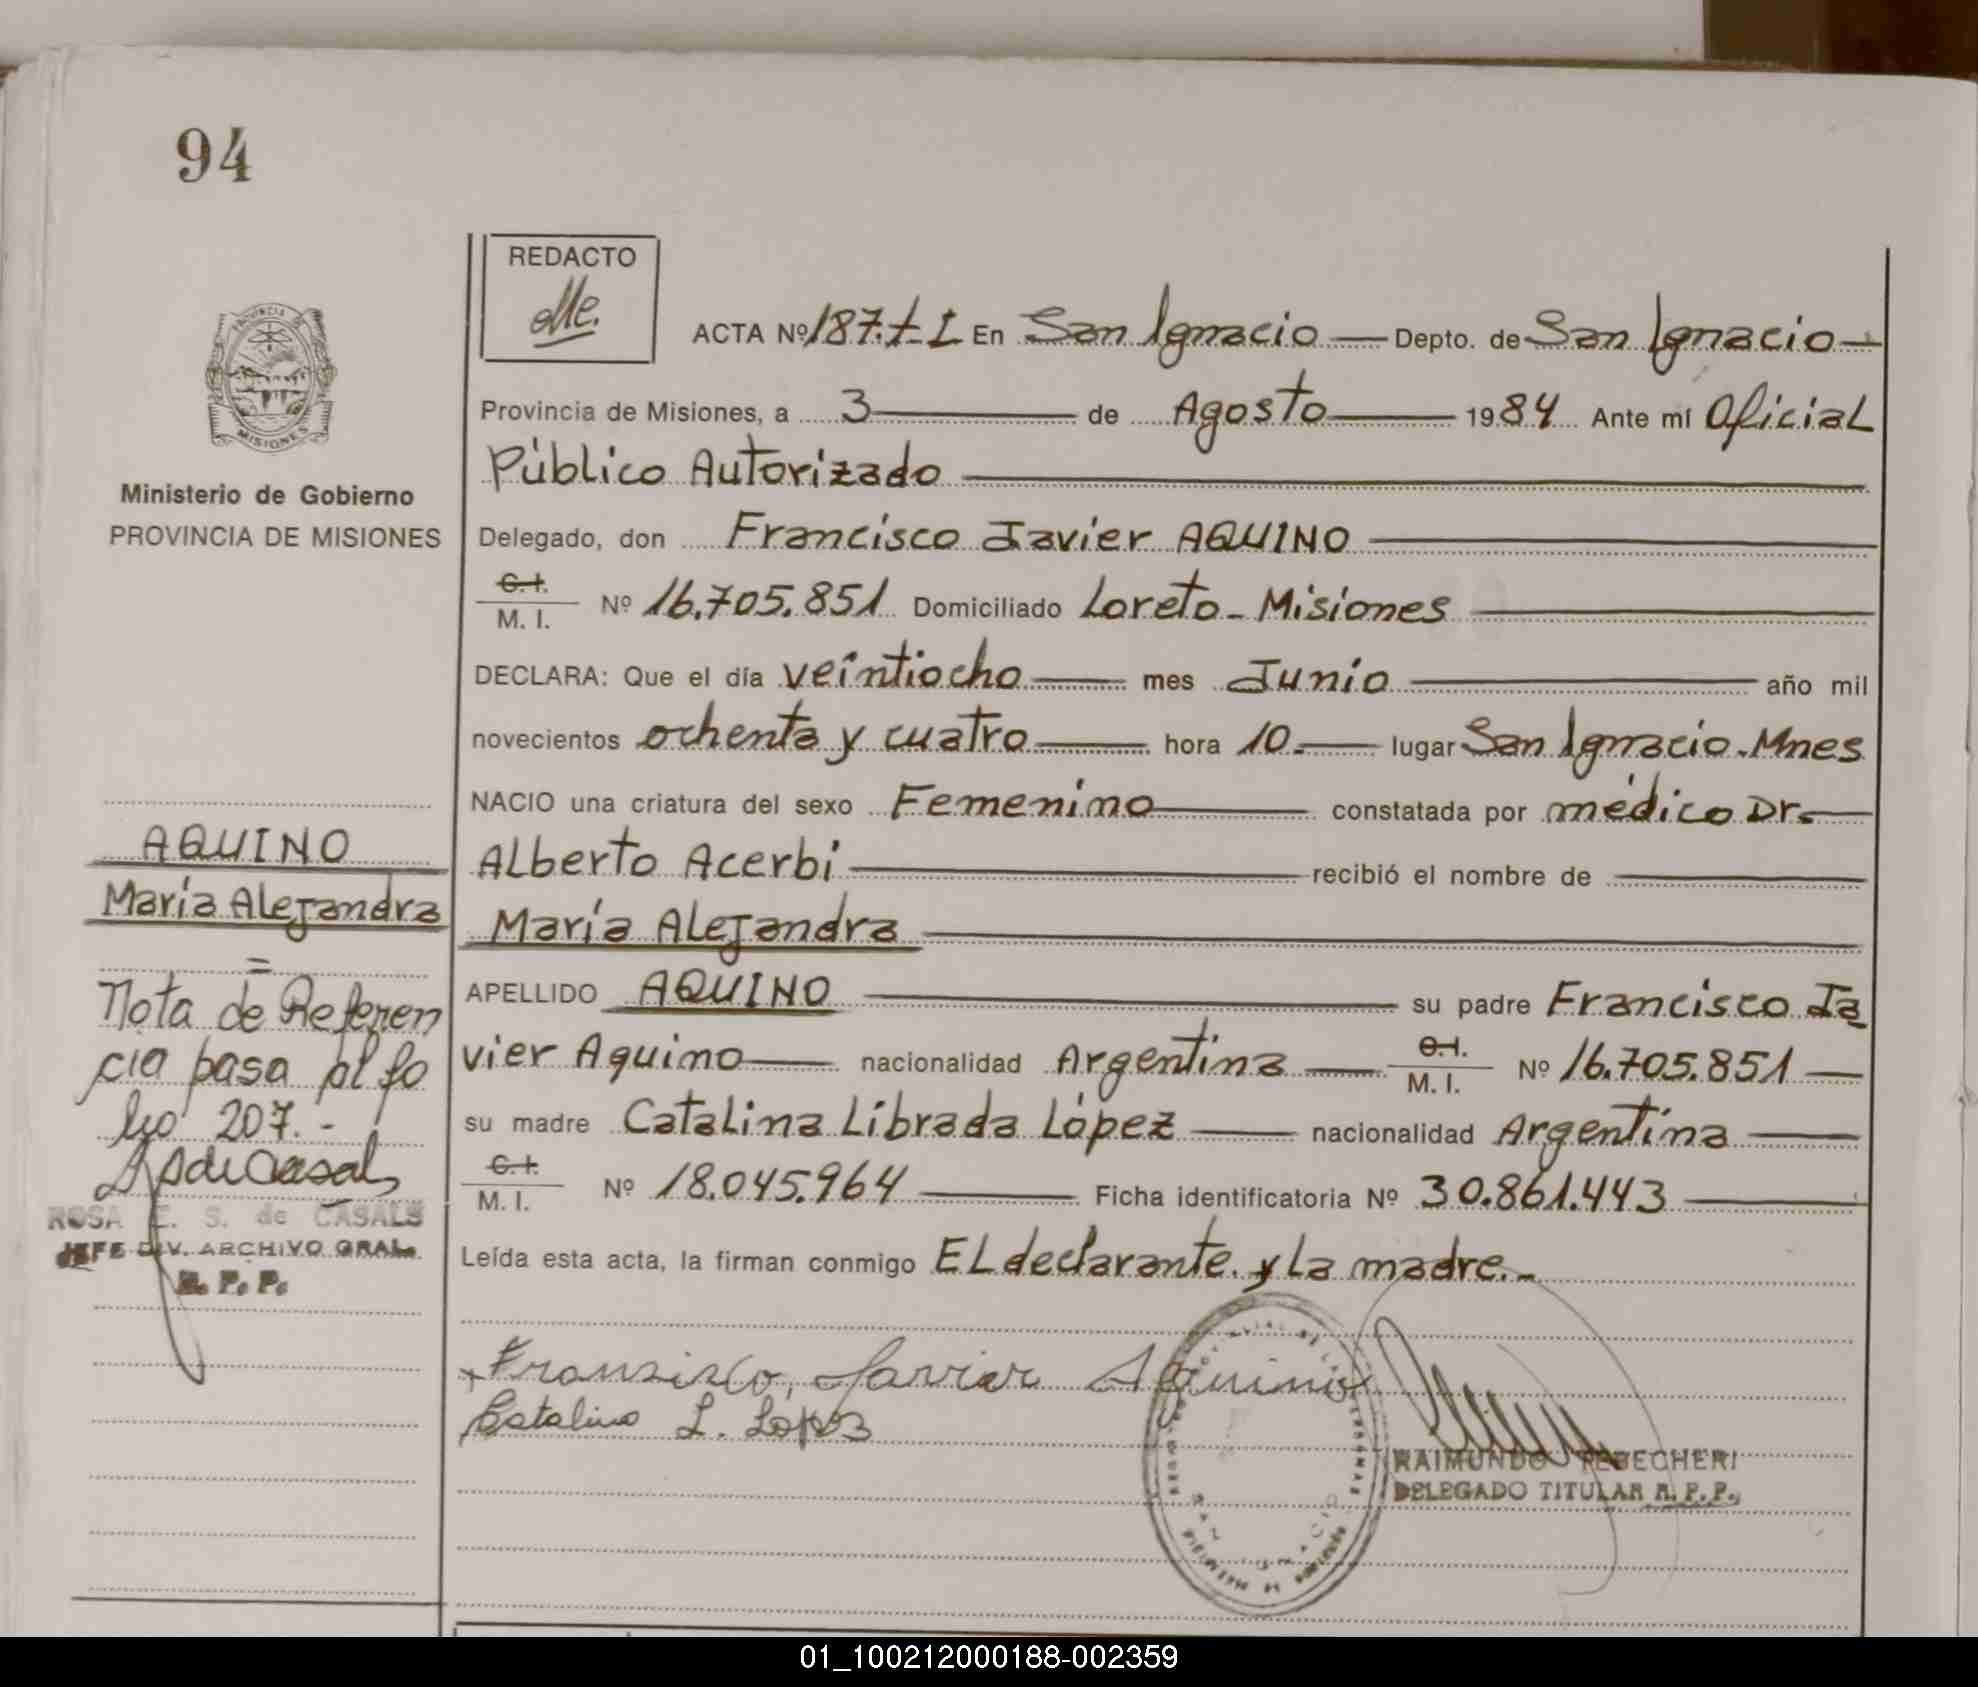 94
REDACTO
PROVINCIA DE
MISIONES
ACTA Nº 187. t. I En San Ignacio — Depto. de San Ignacio —
Provincia de Misiones, a 3 — de Agosto — 1984 Ante mí Oficial
Público Autorizado —
Ministerio de Gobierno
PROVINCIA DE MISIONES
Delegado, don Francisco Javier AQUINO —
C. I.
M. I. Nº 16.705.851 Domiciliado Loreto - Misiones —
DECLARA: Que el día veintiocho — mes Junio — año mil
novecientos ochenta y cuatro — hora 10.— lugar San Ignacio.Mnes
NACIO una criatura del sexo Femenino — constatada por médico Dr.—
Alberto Acerbi — recibió el nombre de —
María Alejandra —
APELLIDO AQUINO — su padre Francisco Ja
vier Aquino — nacionalidad Argentina — C.I.
M. I. Nº 16.705.851 —
su madre Catalina Librada López — nacionalidad Argentina —
C. I.
M. I. Nº 18.045.964 — Ficha identificatoria Nº 30.861.443 —
Leída esta acta, la firman conmigo El declarante y la madre.-
Fransisco, Javier Aquino
Catalina L. López
RAIMUNDO
DELEGADO TITULAR R. P. P.
AQUINO
María Alejandra
=
Nota de Referen
cia pasa al fo
lio 207.-
ROSA E. S. de CASALS
JEFE DIV. ARCHIVO GRAL.
R. P. P.
01_100212000188-002359